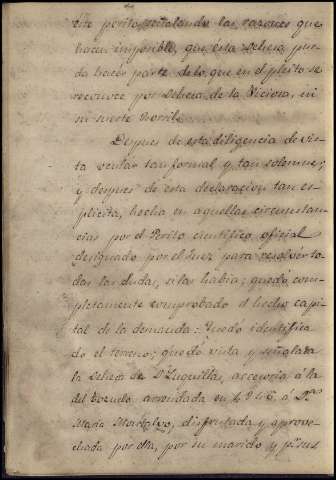 este perito, señalando las razones que
hacen imposible, que ésta Dehesa pue-
da hacer parte de lo, que en el pleito se
reconoce por Dehesa de la Viciosa, ni
su suerte
Despues de esta diligencia de vis-
ta ocular tan formal y tan solemne;
y despues de esta declaracion tan es-
plicita, hecha en aquellas circunstan-
cias por el Perito cientifico oficial
designado por el Juez para resolver to-
das las dudas, si las habia; quedó com-
pletamente comprobado el hecho capi-
tal de la demanda: Quedó identifica-
do el terreno; quedó vista y señalada
la Dehesa de accesoria á la
del arrendada en 1846 á D.ª
Maria Montalvo, disfrutada y aprove-
chada por ella, por su marido y p.r sus